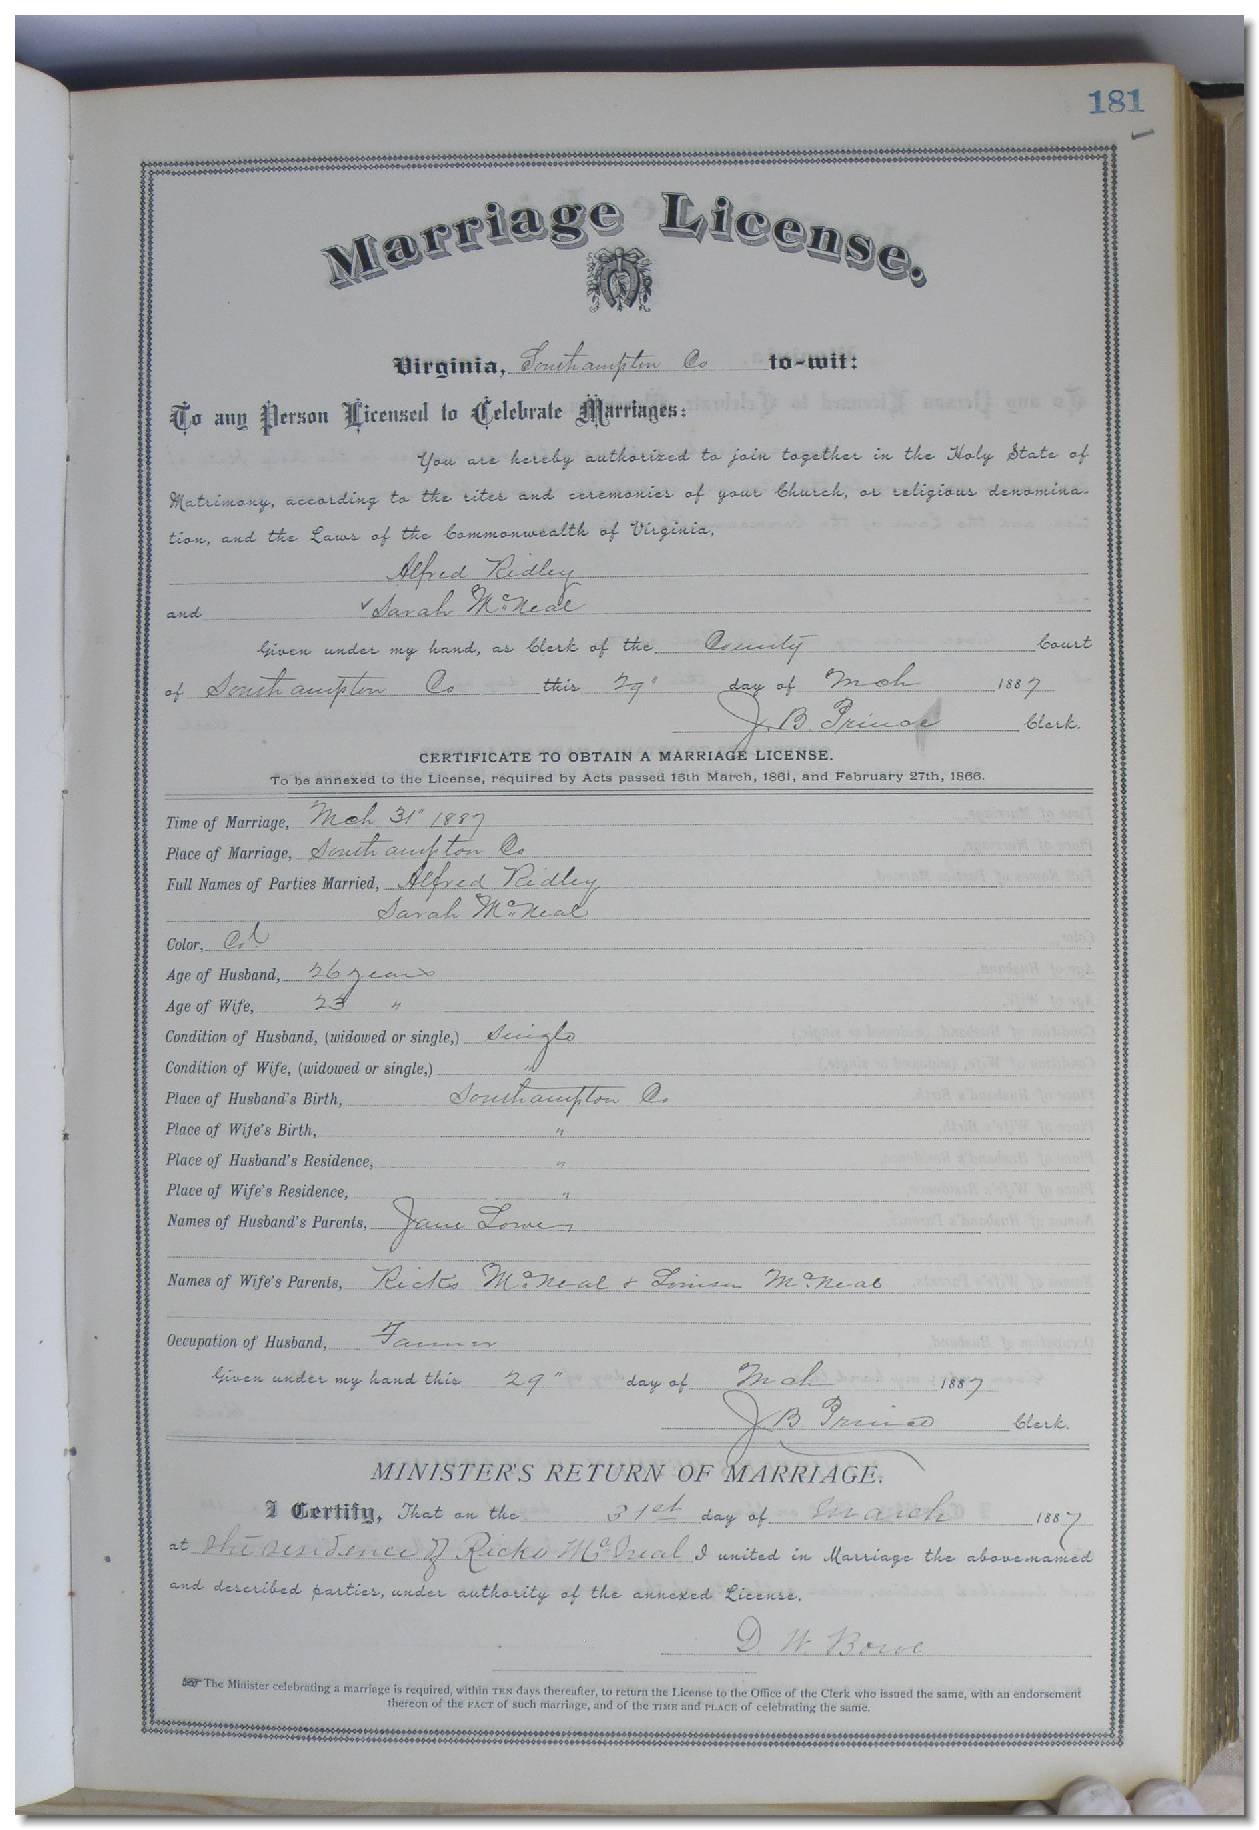 181
Marriage License.
Virginia, Southampton Co to-wit:
To any Person Licensed to Celebrate Marriages:
You are hereby authorized to join together in the Holy State of
Matrimony, according to the rites and ceremonies of your Church, or religious denomina-
tion, and the Laws of the Commonwealth of Virginia,
Alfred Ridley
and Sarah McNeal
Given under my hand, as Clerk of the County Court
of Southampton Co this 29" day of Mch 1887
J. B. Prince Clerk.
CERTIFICATE TO OBTAIN A MARRIAGE LICENSE.
To be annexed to the License, required by Acts passed 16th March, 1861, and February 27th, 1866.
Time of Marriage, Mch 31" 1887
Place of Marriage, Southampton Co
Full Names of Parties Married, Alfred Ridley
Sarah McNeal
Color, Col
Age of Husband, 26 years
Age of Wife, 23 "
Condition of Husband, (widowed or single,) Single
Condition of Wife, (widowed or single,) "
Place of Husband's Birth, Southampton Co
Place of Wife's Birth, "
Place of Husband's Residence, "
Place of Wife's Residence, "
Names of Husband's Parents, Jane
Names of Wife's Parents, Ricks McNeal & Louisa McNeal
Occupation of Husband, Farmer
Given under my hand this 29" day of Mch 1887
J B Prince Clerk.
MINISTER'S RETURN OF MARRIAGE.
I Certify, That on the 31st day of March 1887
at the residence of Ricks McNeal I united in Marriage the above-named
and described parties, under authority of the annexed License.
D. W. Bowe
The Minister celebrating a marriage is required, within TEN days thereafter, to return the License to the Office of the Clerk who issued the same, with an endorsement
thereon of the FACT of such marriage, and of the TIME and PLACE of celebrating the same.